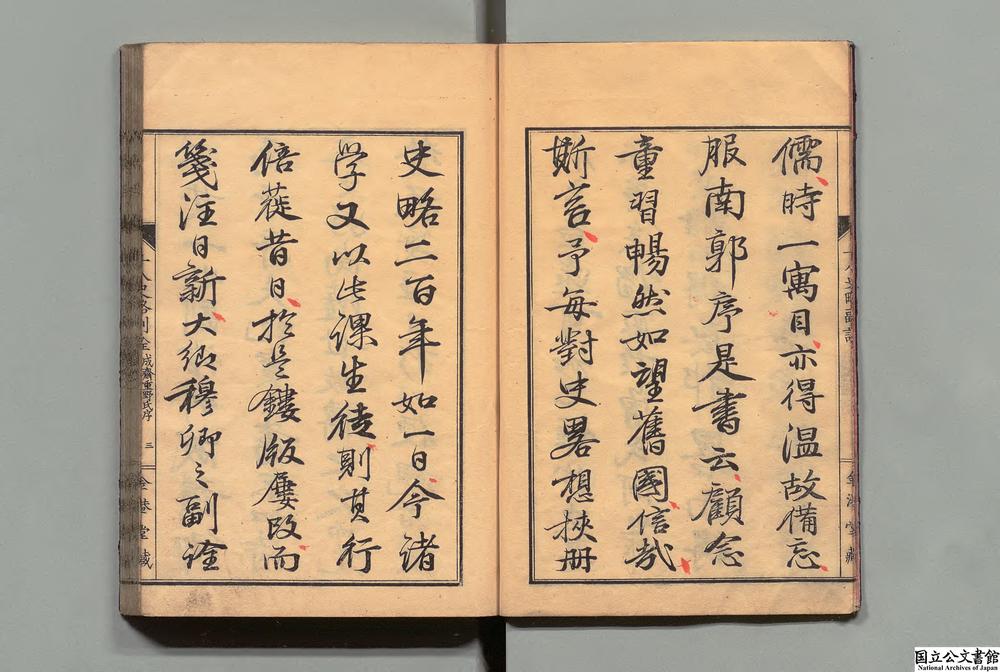 儒時一寓目亦得温故備忘
服南郭序是書云顧念
童習暢然如望舊國信哉
斯言予每對史畧想挾册
史略二百年如一日今諸
学又以此課生徒則其行
倍蓰昔日於是鏤版屢改而
箋注日新大郷穆卿之副詮
成齋重野氏序 三
金港堂藏
国立公文書館
National Archives of Japan